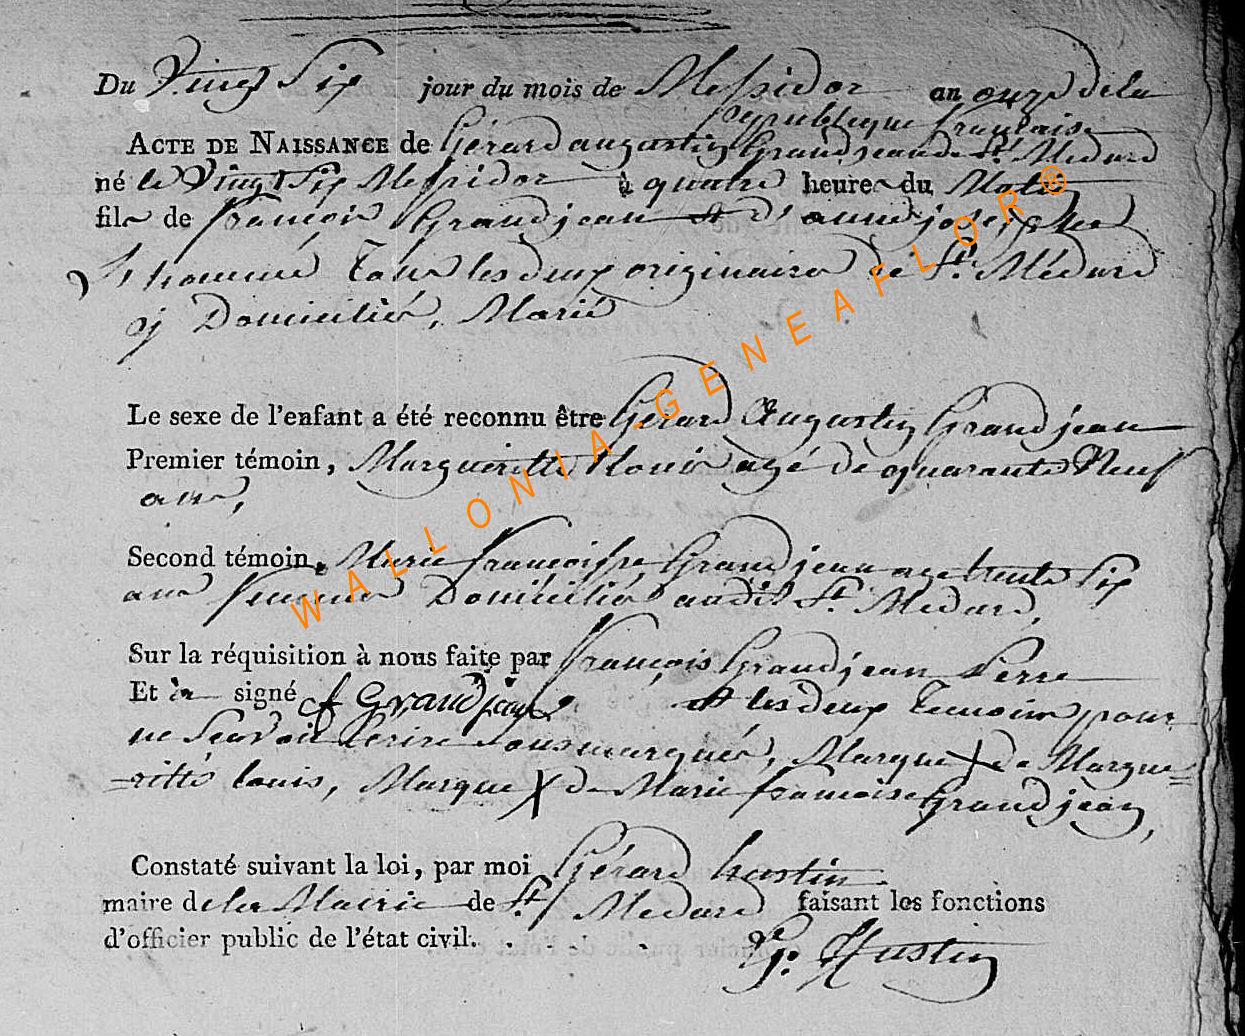 Du Vingt Six jour du mois de Messidor an onze de la
republique française
ACTE DE NAISSANCE de Gérard augustin Grandjean de St. Medard
né le Vingt Six Messidor à quatre heures du Matin
fils de francois Grandjean et d'anne josephe
thomme Tous les deux originaires de St. Médard
y Domiciliés, Mariés
Le sexe de l'enfant a été reconnu être Gérard Augustin Grandjean
Premier témoin, Margueritte Louis agé de quarante Neuf
ans,
Second témoin, Marie francoisse Grandjean age trente Six
ans Domiciliés audit St. Medard,
Sur la réquisition à nous faite par françois Grandjean Perre
Et signé f Grandjean et les deux Temoins pour
ne Scavoir Ecrire Sousmarqués, Marque X de Margue=
=ritte louis, Marque X de Marie francoise Grandjean,
Constaté suivant la loi, par moi Gérard hustin
maire de la Mairie de St. Medard faisant les fonctions
d'officier public de l'état civil.
G. Hustin
WALLONIA-GENEAFLOR®